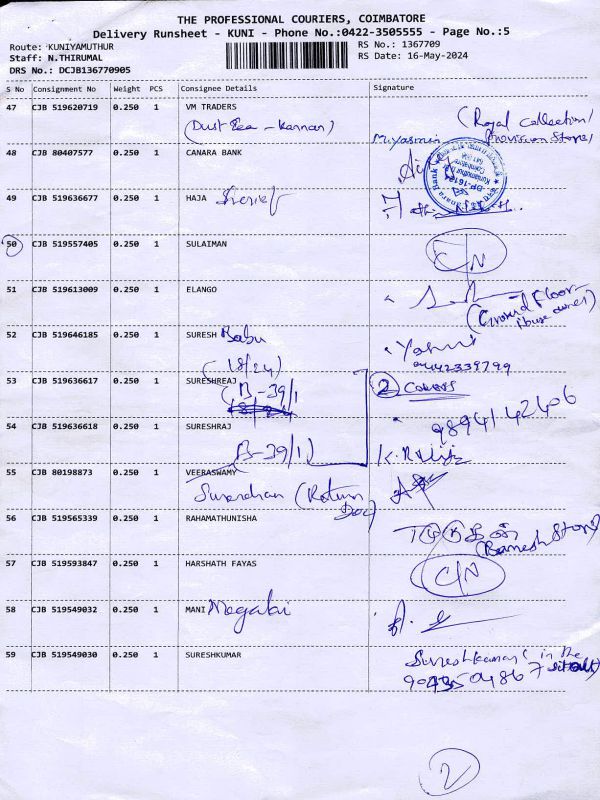 THE PROFESSIONAL COURIERS, COIMBATORE
Delivery Runsheet - KUNI - Phone No.:0422-3505555 - Page No.:5
Route: KUNIYAMUTHUR RS No.: 1367709
Staff: N.THIRUMAL RS Date: 16-May-2024
DRS No.: DCJB136770905
S No Consignment No Weight PCS Consignee Details Signature
47 CJB 519620719 0.250 1 VM TRADERS (Royal Collection/
(Dust Tea - Kannan) M.Yasmin Provision Store)
48 CJB 80407577 0.250 1 CANARA BANK
49 CJB 519636677 0.250 1 HAJA Sherief
50 CJB 519557405 0.250 1 SULAIMAN C/N
51 CJB 519613009 0.250 1 ELANGO
(Ground Floor-
house owner)
52 CJB 519646185 0.250 1 SURESH Babu
(18/24) 9442339799
53 CJB 519636617 0.250 1 SURESHREAJ 2 Covers
(B-39/1
54 CJB 519636618 0.250 1 SURESHRAJ 9894142406
(B-39/1)
55 CJB 80198873 0.250 1 VEERASWAMY
Surendran (Return
Doc)
56 CJB 519565339 0.250 1 RAHAMATHUNISHA
(Ramesh Store)
57 CJB 519593847 0.250 1 HARSHATH FAYAS C/N
58 CJB 519549032 0.250 1 MANI Megalai
59 CJB 519549030 0.250 1 SURESHKUMAR Sureshkumar (in the
2